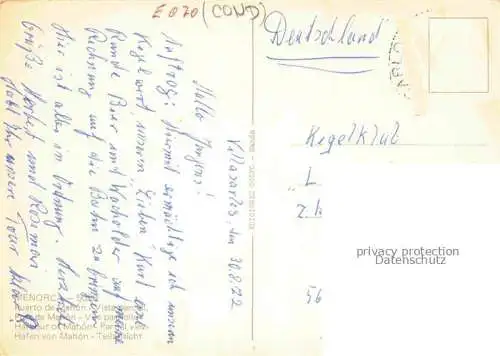 E 070 (COND)
Deutschland
Kegelklub
L
Z.
56
privacy protection
Datenschutz
Villacarlos, den 30.8.72
Hallo Jungens!
Hiermit ermächtige ich unseren
Kegelwart, unseren lieben Kurt eine
Runde Bier mit Wacholder auf meine
Rechnung auf die Bahn zu bringen.
Hier ist alles in Ordnung. Herzliche
Grüße Herbert und Rosemarie
Habt Ihr unsere Tour
MENORCA
Puerto de Mahón - Vista parcial
Port de Mahón - Vue partielle
Harbour of Mahón - Partial view
Hafen von Mahón - Teilansicht